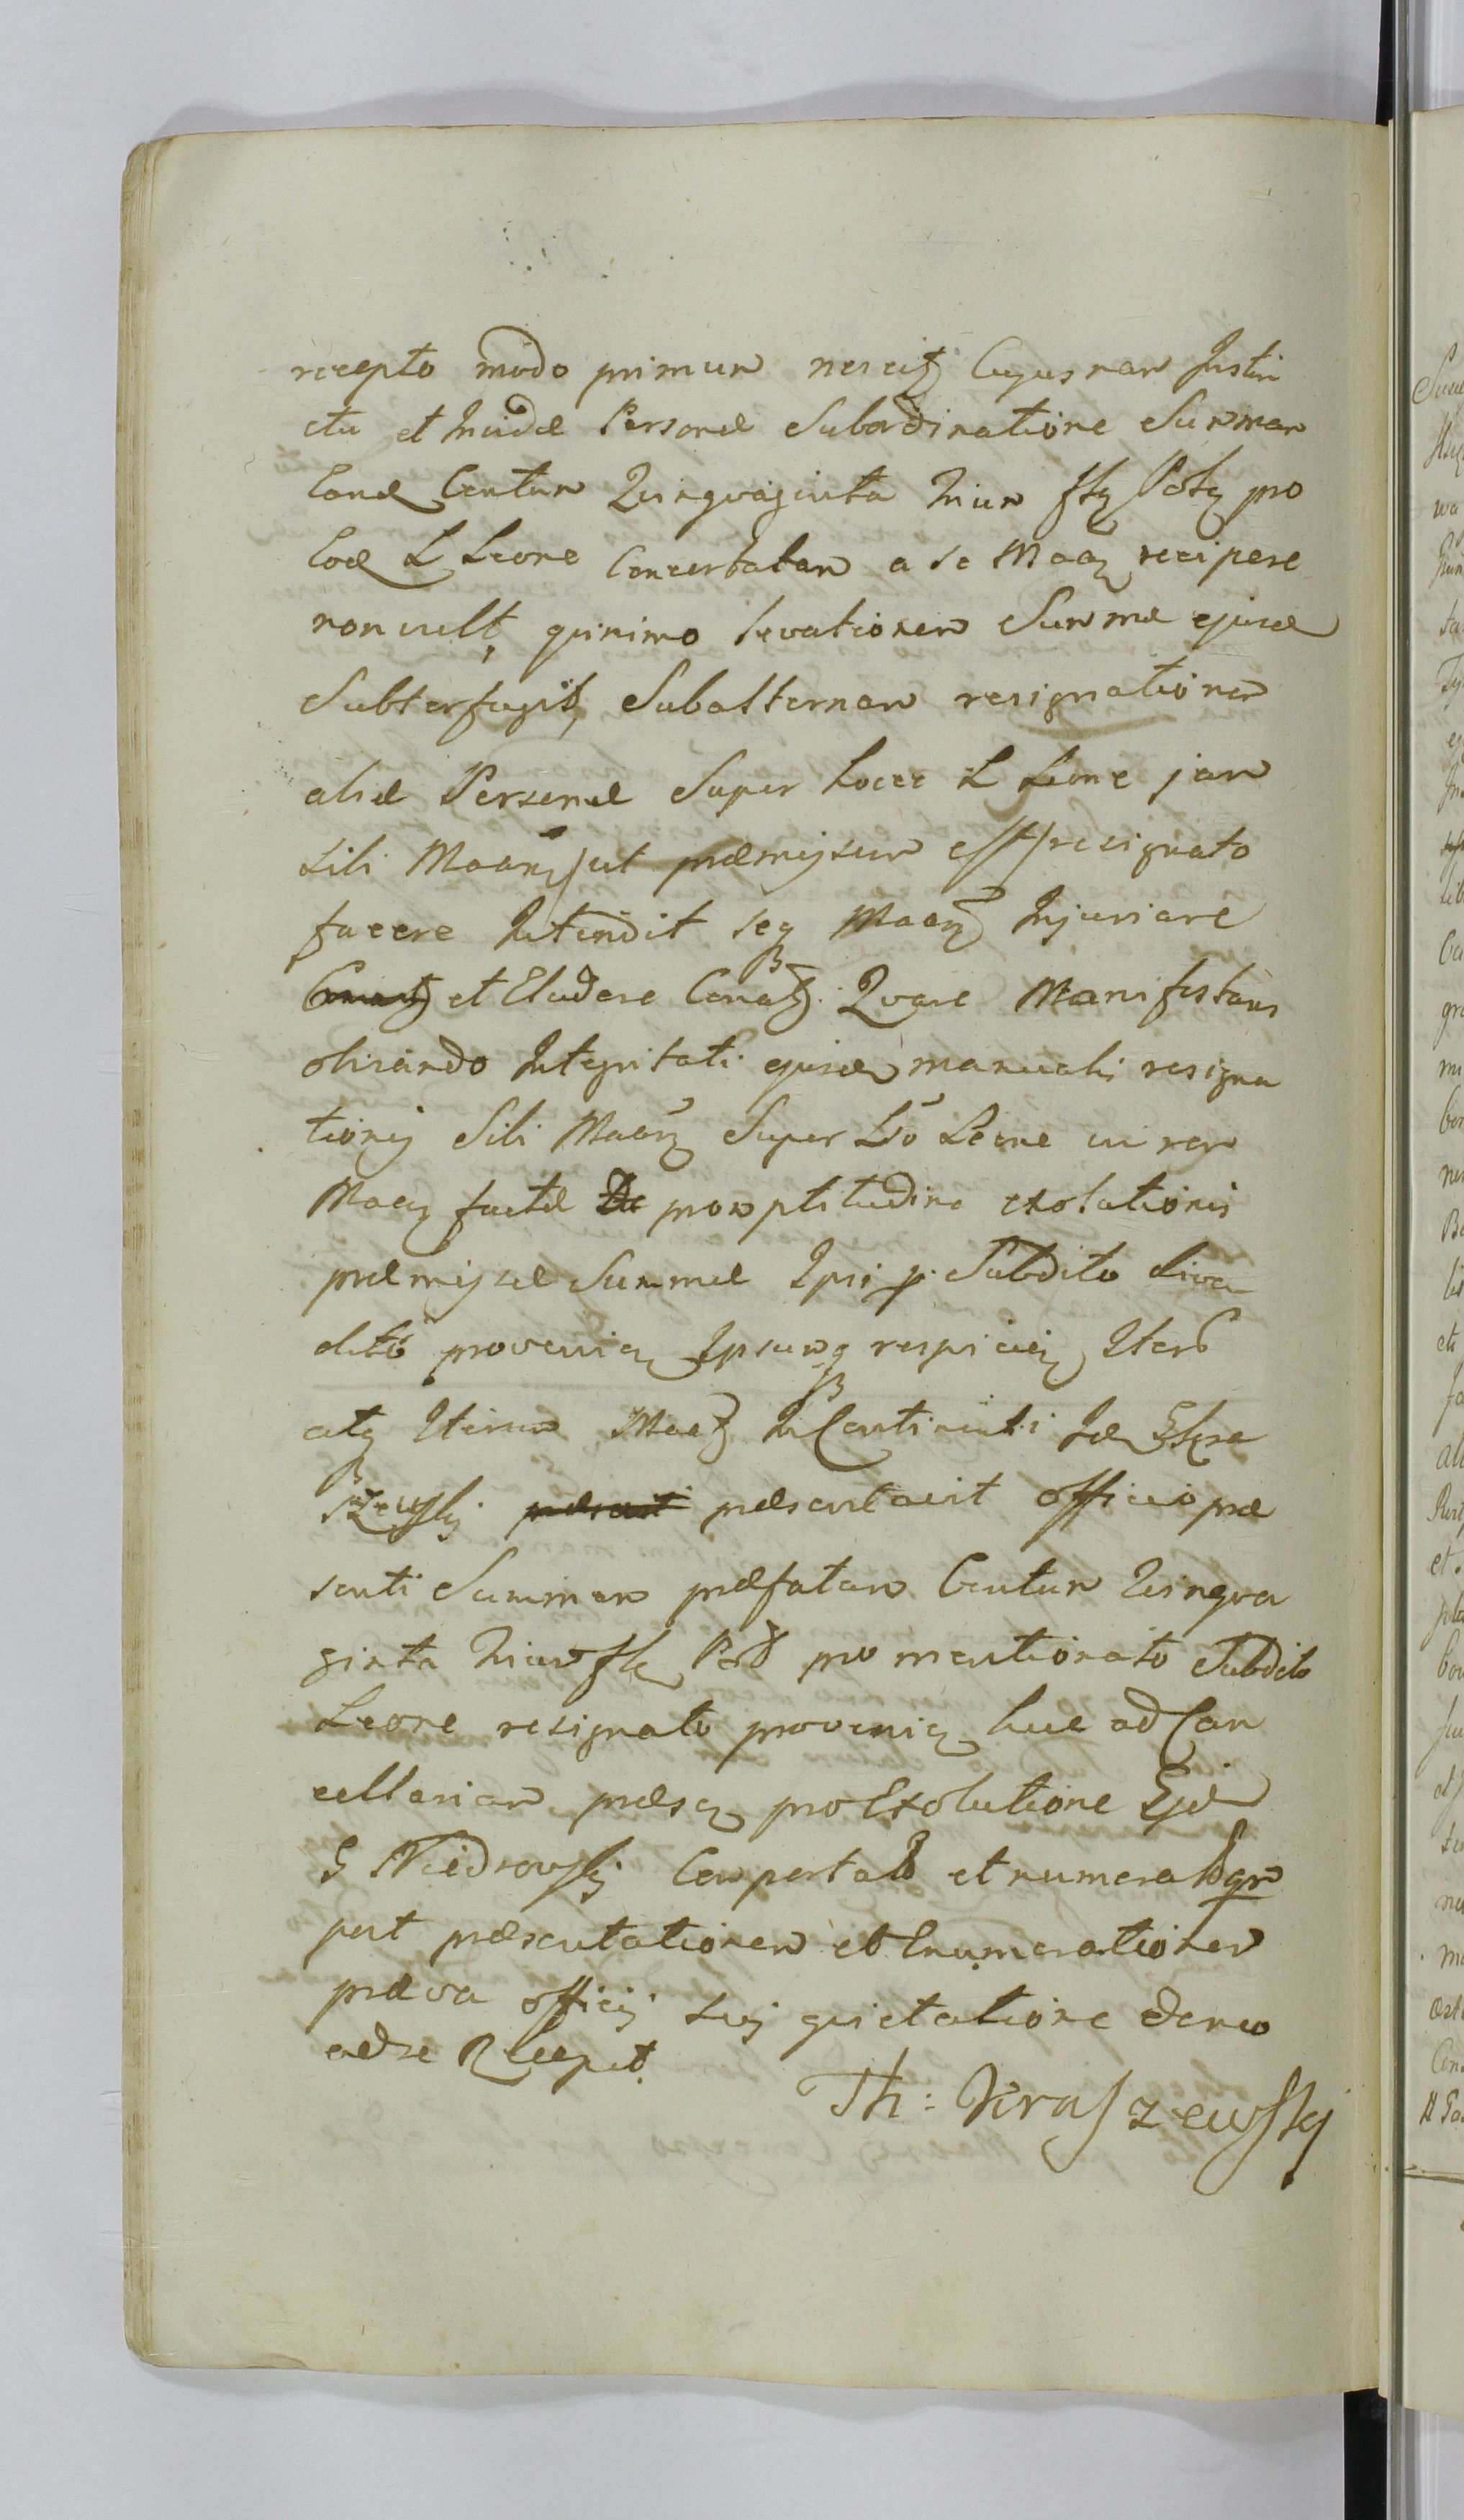 recepto modo primum nescitq Cujusnam Instin
ctu et Invidae Personae Subordinatione Summam
Eand Centum Quinquaginta Trium flq Polq pro
Eod L Leone Concertatam a se Maaq recipere
non vult, quinimo levationem Summae ejusd
Subterfugit, Subalternam resignationem
aliae Personae Super hocce L Leone jam
sibi Maanq /ut praemissum est/ resignato
facere Intendit seq Maanq Injuriare
et Eludere Conatq. Quare Manifestans
obviando Integritati ejusd manuali resigna
tionis Sibi Maanq Super Lto Leone
Maaq factae promptitudine exolutionis
praemissae Summae Ipsi Subdito
provenien Ipsumq respicien Iterb
atq Iterum Maatq In Continenti Id
praesentavit Officio prae
senti Summam praefatam Centum Quinqua
ginta Trium fl Pol pro mentionato Subdito
Leone resignato provenien huc ad Can
cellariam praesen pro Exolutione Ejd
G Niedrowski Comportat et numerat
post praesentationem et Enumerationem
praevia officij sui quietatione denuo
ad se Recepit.
Th: Kraszewski